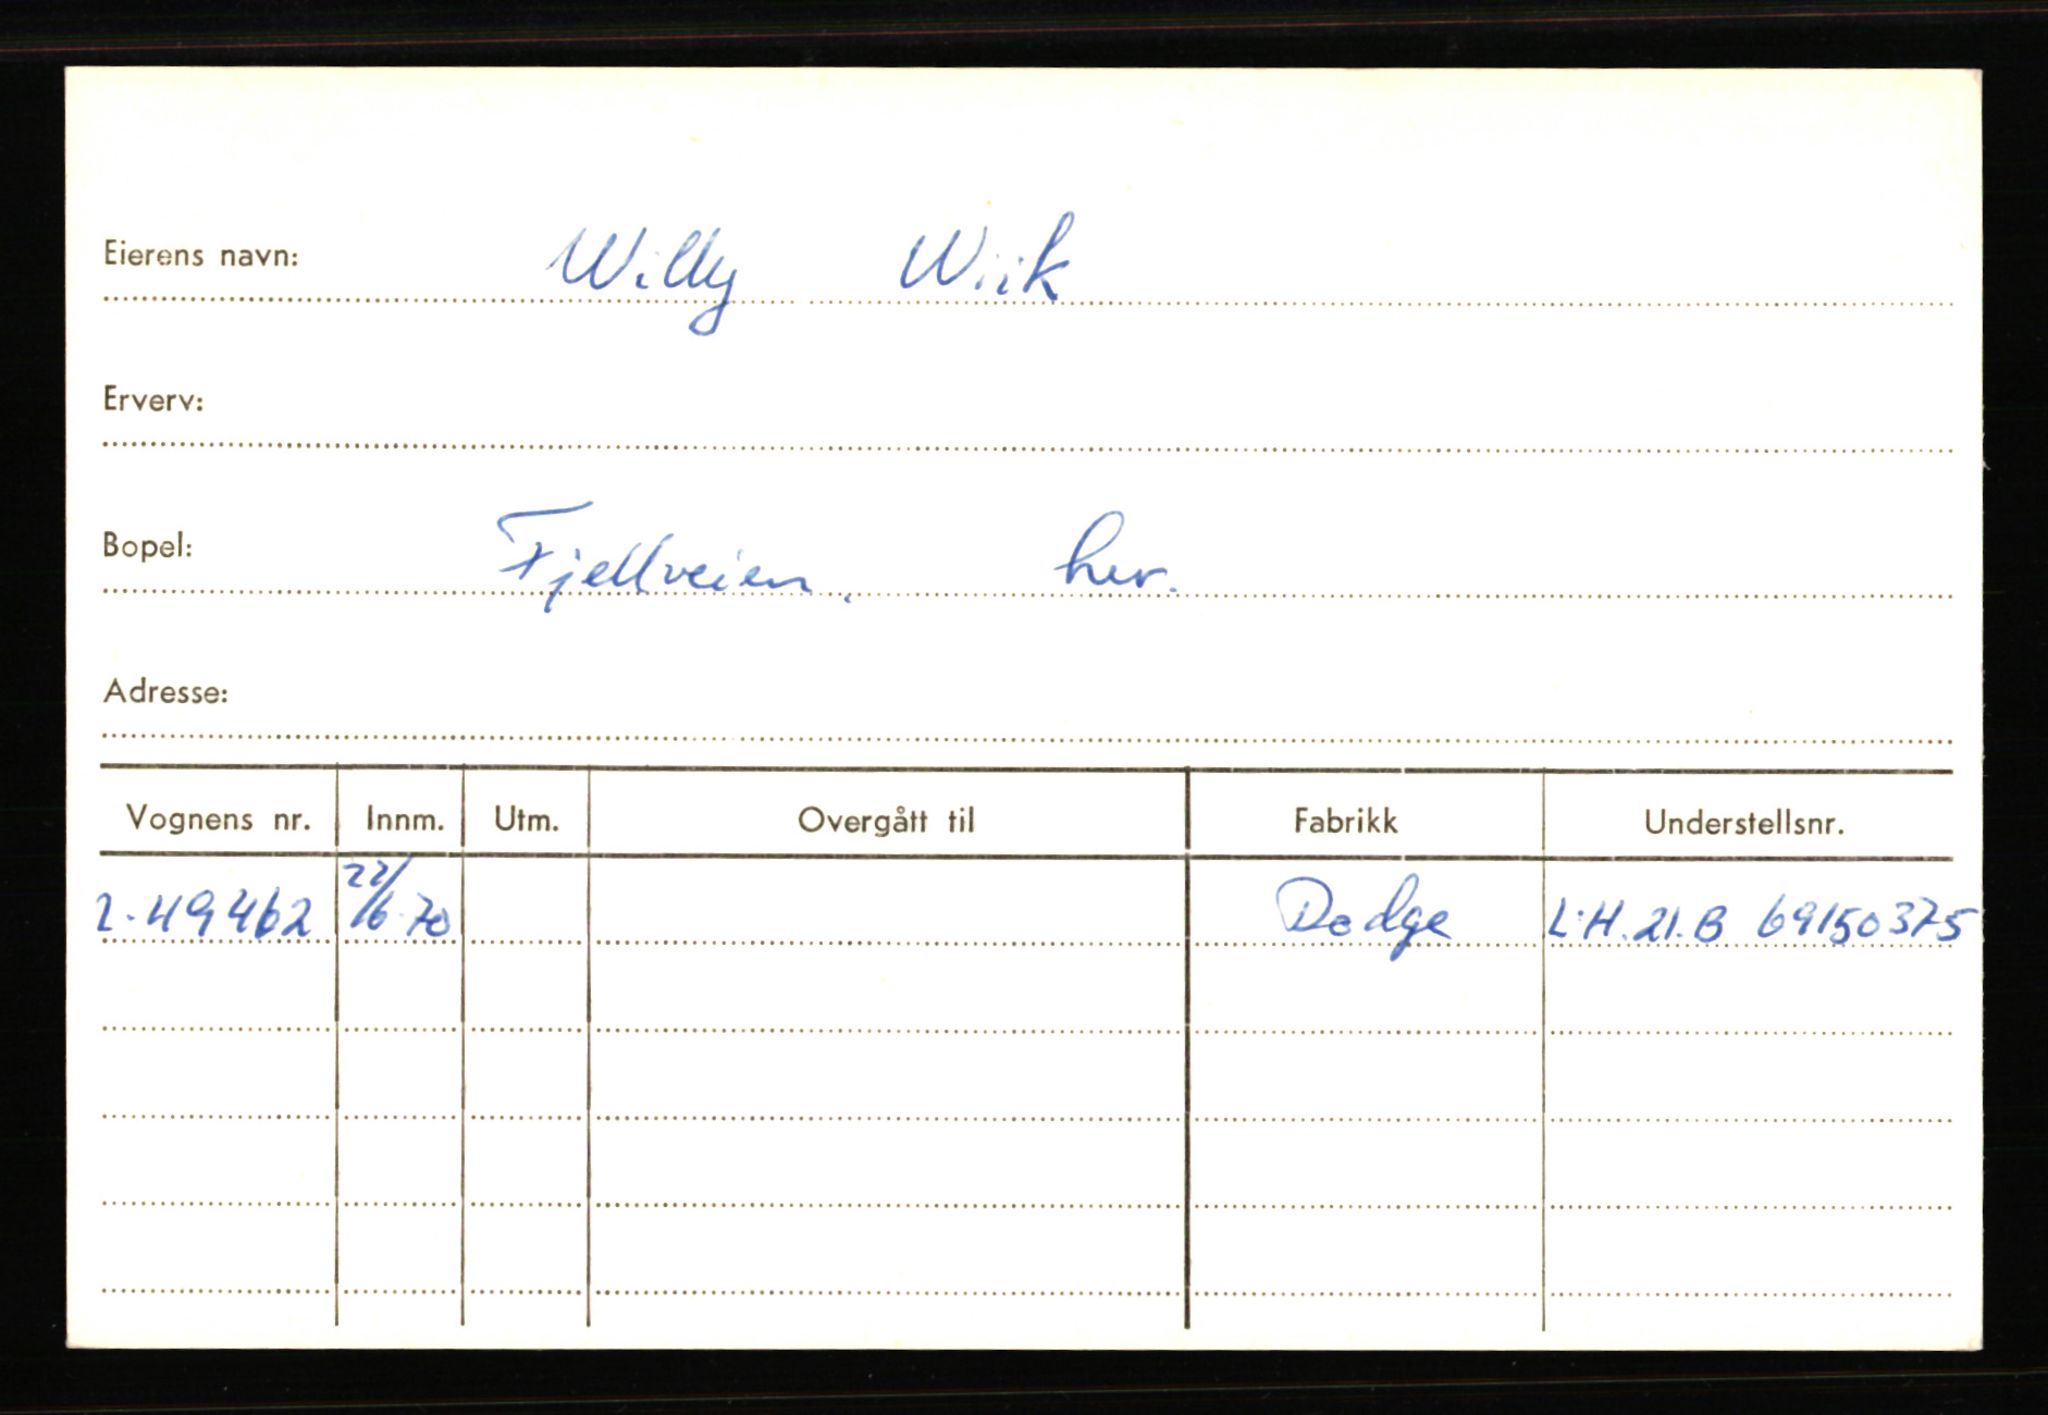 Eierens navn: Willy Wiik
Erverv:
Bopel: Fjellveien, her.
Adresse:
Vognens nr. Innm. Utm. Overgått til Fabrikk Understellsnr.
L-49462 22/6-70 Dodge L.H.21.B 69150375